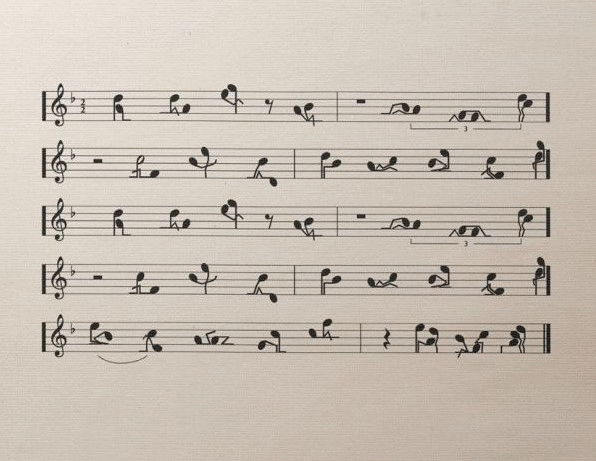 2
2
3
3